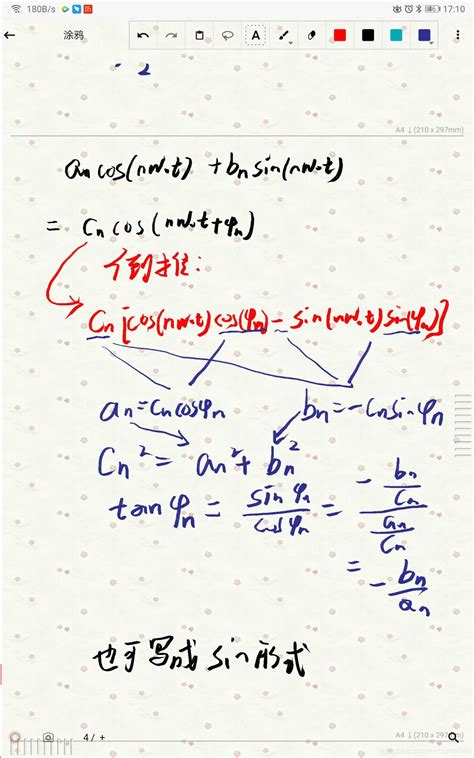 180B/s 17:10
涂鸦 A
2
A4 ↓(210 x 297mm)
aₙcos(nω₀t) + bₙsin(nω₀t)
= Cₙcos(nω₀t+φₙ)
倒推:
Cₙ[cos(nω₀t)cos(φₙ) - sin(nω₀t)sin(φₙ)]
aₙ=Cₙcosφₙ bₙ=-Cₙsinφₙ
Cₙ² = aₙ² + bₙ²
tanφₙ = sinφₙ/cosφₙ = -(bₙ/Cₙ)/(aₙ/Cₙ)
= -bₙ/aₙ
也可写成sin形式
4/+ A4 ↓(210 x 297mm)